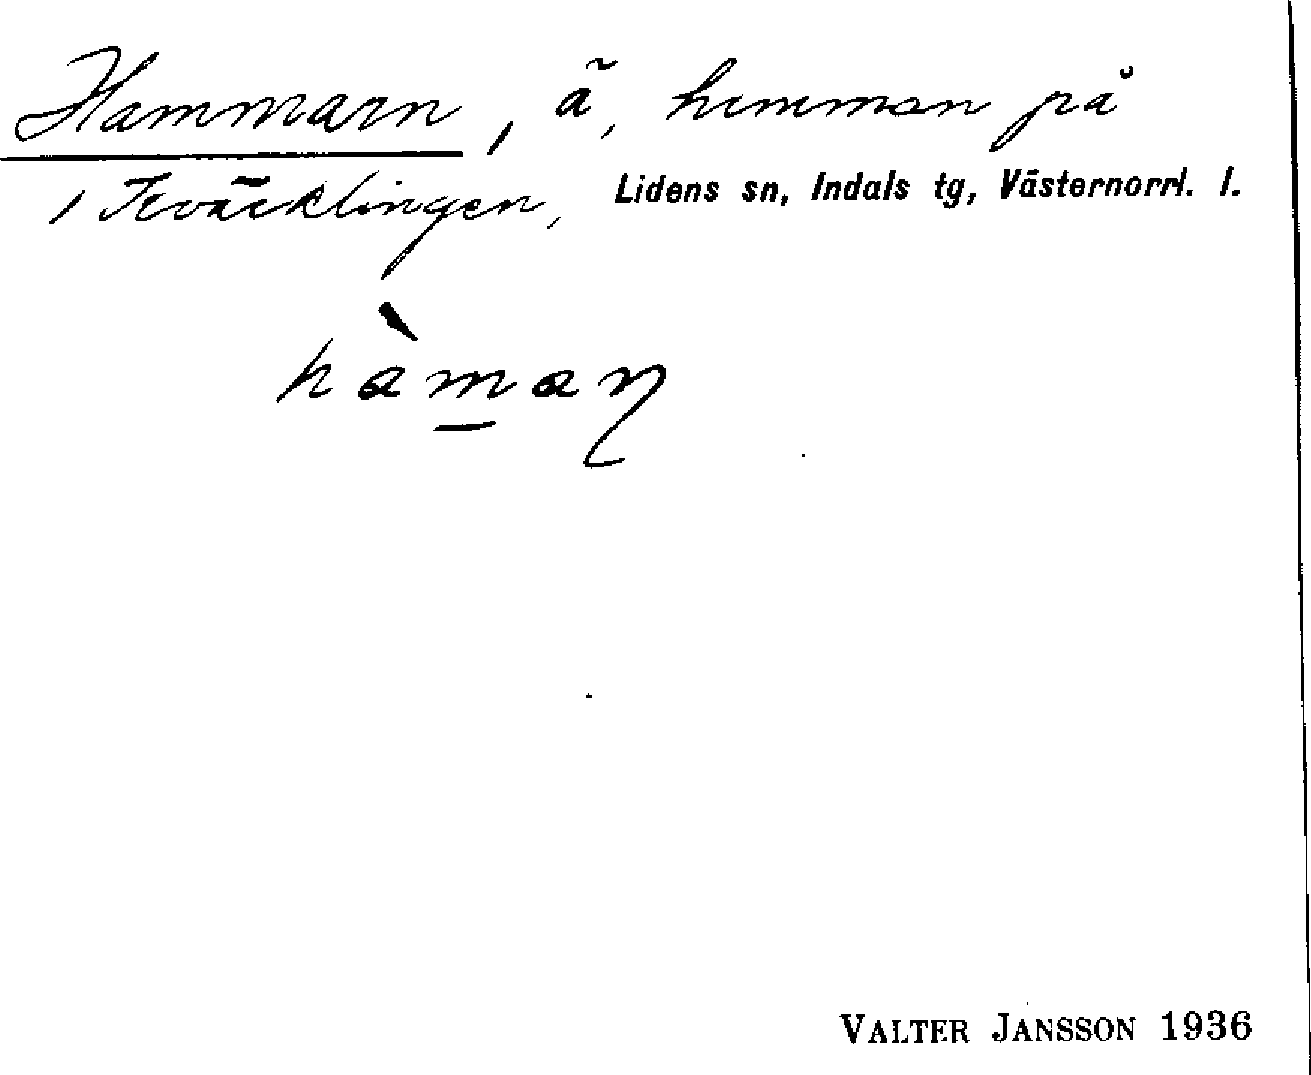 Hammarn, ä, hemman på
Kväcklingen, Lidens sn, Indals tg, Västernorrl. l.
hàmaɳ
VALTER JANSSON 1936